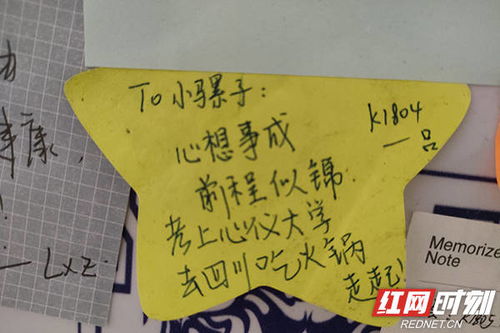 To 小骡子:
K1804
一品
心想事成
前程似锦
考上心仪大学
去四川吃火锅
走起!
康,
— LXZ
Memorize
Note
K1805
红网时刻
REDNET.CN